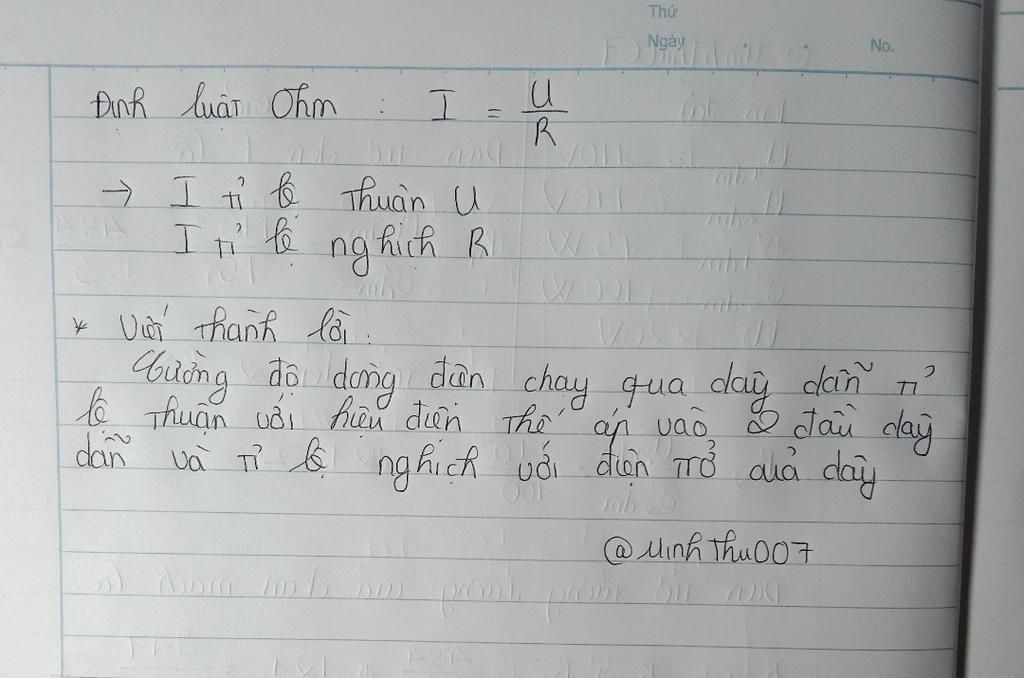 Thứ
Ngày No.
Định luật Ohm : I = U/R
→ I tỉ lệ thuận U
I tỉ lệ nghịch R
* Viết thành lời :
Cường độ dòng điện chạy qua dây dẫn tỉ
lệ thuận với hiệu điện thế áp vào 2 đầu dây
dẫn và tỉ lệ nghịch với điện trở của dây
@MinhThu007